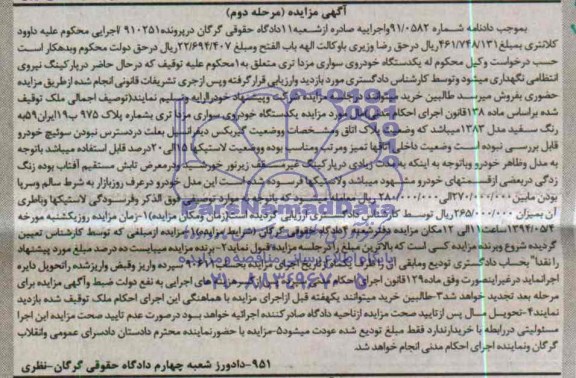 آگهی مزایده (مرحله دوم)
بموجب دادنامه شماره ۹۱/۰۵۸۲ واجراییه صادره ازشعبه ۱۱ دادگاه حقوقی گرگان درپرونده ۹۱۰۲۵۱ اجرایی محکوم علیه داوود
کلانتری بمبلغ ۴۶۱/۷۴۸/۱۳۱ ریال درحق رضا وزیری باوکالت الهه باب الفتح ومبلغ ۲۲/۶۹۴/۴۰۷ ریال درحق دولت محکوم وبدهکار است
حسب درخواست وکیل محکوم له یکدستگاه خودروی سواری مزدا تری متعلق به (محکوم علیه توقیف که درحال حاضر درپارکینگ نیروی
انتظامی نگهداری میشود وتوسط کارشناس دادگستری مورد بازدید وارزیابی قرار گرفته وپس ازجری تشریفات قانونی انجام شده ازطریق مزایده
حضوری بفروش میرسد طالبین خرید میتوانند درجلسه مزایده شرکت وپیشنهاد خودراارایه وتسلیم نمایند(توصیف اجمالی ملک توقیف
شده براساس ماده ۱۳۸ قانون اجرای احکام مدنی)مال مورد مزایده یکدستگاه خودروی سواری مزدا تری بشماره پلاک ۹۷۵ ب ۱۹ ایران ۵۹ به
رنگ سفید مدل ۱۳۸۳ میباشد که وضعیت پلاک اتاق ومشخصات ووضعیت گیربکس دیفرانسیل بعلت دردسترس نبودن سوئیچ خودرو
قابل بررسی نبوده است وضعیت داخل اتاقها تمیز ومرتب ومناسب بوده ووضعیت لاستیکها ۱۵ الی ۲۰ درصد قابل استفاده میباشد باتوجه
به مدل وظاهر خودرو وباتوجه به اینکه به مدت زیادی درپارکینگ غیر مسقف زیرنور خورشید ودرمعرض تابش مستقیم آفتاب بوده رنگ
زدگی دربعضی ازقسمتهای خودرو مشهود میباشد ولاستیکها فرسوده شده است این مدل خودرو درعرف روزبازار به شرط سالم وسرپا
بودن مابین ۲۷۰/۰۰۰/۰۰۰ الی ۲۸۰/۰۰۰/۰۰۰ ریال میشود که باتوجه به موارد فوق الذکر وفرسودگی لاستیکها وباطری
آن بمیزان ۲۶۵/۰۰۰/۰۰۰ ریال توسط کارشناس دادگستری ارزیابی گردیده است زمان ومکان مزایده)۱-زمان مزایده روزیکشنبه مورخه
۱۳۹۴/۰۵/۴ ساعت ۱۱ الی ۱۲ مکان مزایده دفترشعبه ۴ دادگاه حقوقی گرگان (شرایط مزایده)۱-مزایده ازمبلغی که توسط کارشناس تعیین
گردیده شروع وبرنده مزایده کسی است که بالاترین مبلغ رادرجلسه مزایده قبول نماید۲-برنده مزایده میبایست ده درصد مبلغ مورد پیشنهاد
را نقدا" بحساب دادگستری تودیع ومابقی آن را ظرف
اجرانماید درغیراینصورت وفق ماده ۱۲۹ قانون اجرای احکام مدنی هزینه های اجرایی به نفع دولت ضبط وآگهی مزایده برای
مرحله بعد تجدید خواهد شد۳-طالبین خرید میتوانند یکهفته قبل ازاجرای مزایده با هماهنگی این اجرای احکام ملک توقیف شده بازدید
نمایند۴-تحویل مال پس ازتایید صحت مزایده ازناحیه دادگاه صادرکننده اجرائیه خواهد بود درصورت عدم تایید صحت مزایده این اجرا
مسئولیتی دررابطه با خریدارندارد فقط مبلغ تودیع شده عودت میشود۵-مزایده با حضورنماینده محترم دادستان دادسرای عمومی وانقلاب
گرگان ونماینده اجرای احکام مدنی انجام خواهد شد.
۹۵۱-دادورز شعبه چهارم دادگاه حقوقی گرگان-نظری